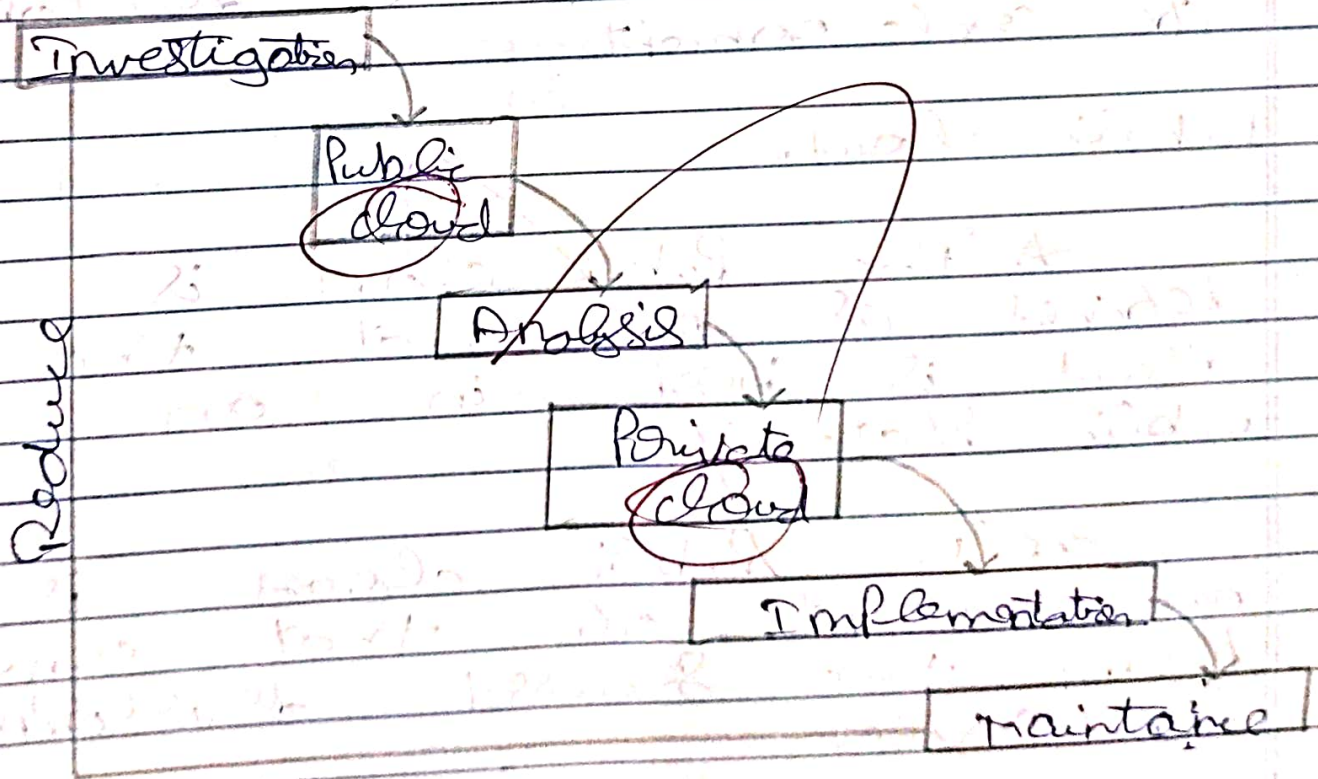 Investigation
Public
cloud
Analysis
Reduce
Private
cloud
Implementation
maintaince